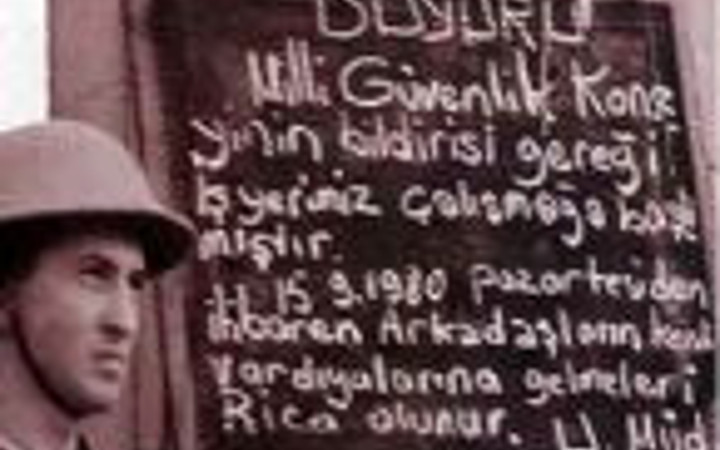 DUYURU
Milli Güvenlik Konse
yinin bildirisi gereği
İş yerimiz çalışmağa başla
mıştır.
15.9.1980 pazartesiden
itibaren Arkadaşların kendi
Vardiyalarına gelmeleri
Rica olunur.